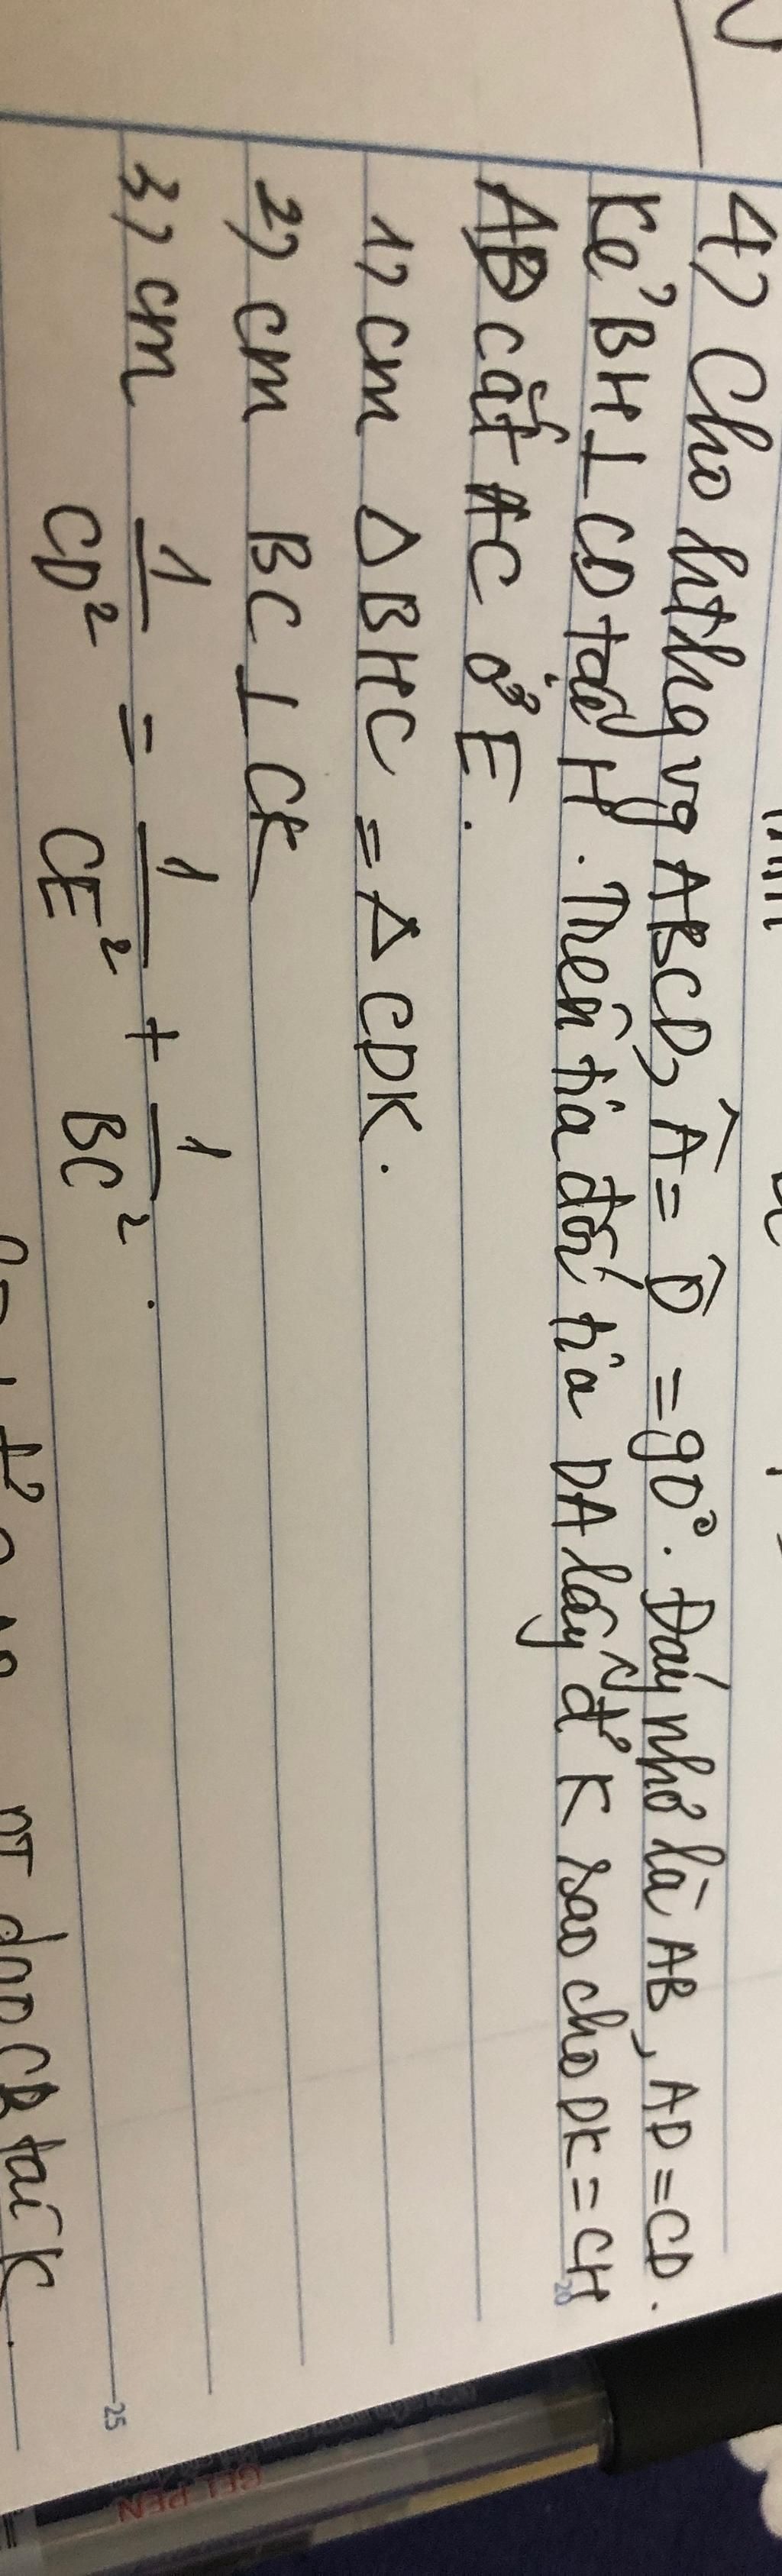 4) Cho hthg vg ABCD, Â = D̂ = 90°. Đáy nhỏ là AB, AD = CD.
Kẻ BH ⊥ CD tại H. Trên tia đối tia DA lấy đ' K sao cho DK = CH
AB cắt AC ở E.
1) cm ΔBHC = ΔCDK.
2) cm BC ⊥ CK
3) cm 1/CD² = 1/CE² + 1/BC².
20
25
GEL PEN